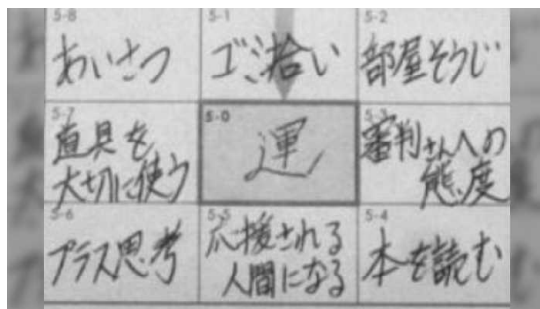 5-8
あいさつ
5-1
ゴミ拾い
5-2
部屋そうじ
5-7
道具を
大切に使う
5-0
運
5-3
審判さんへの
態度
5-6
プラス思考
5-5
応援される
人間になる
5-4
本を読む